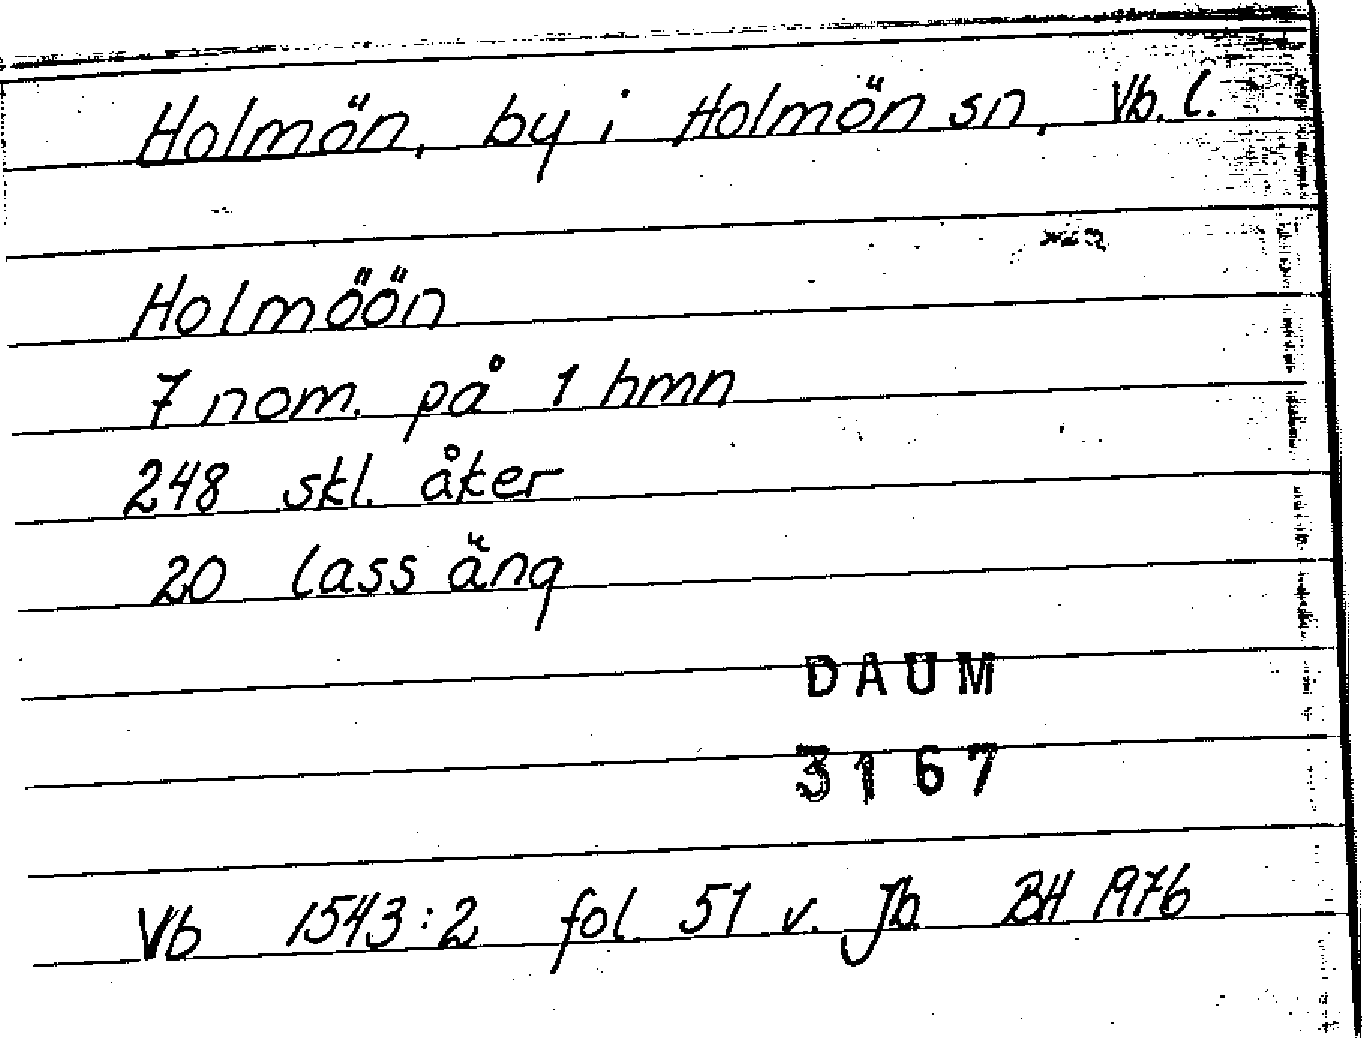 Holmön, by i Holmön sn, Vb. l.
Holmöön
7 nom. på 1 hmn
248 skl. åker
20 lass äng
DAUM
3167
Vb 1543:2 fol 51 v. Jb. BH 1976